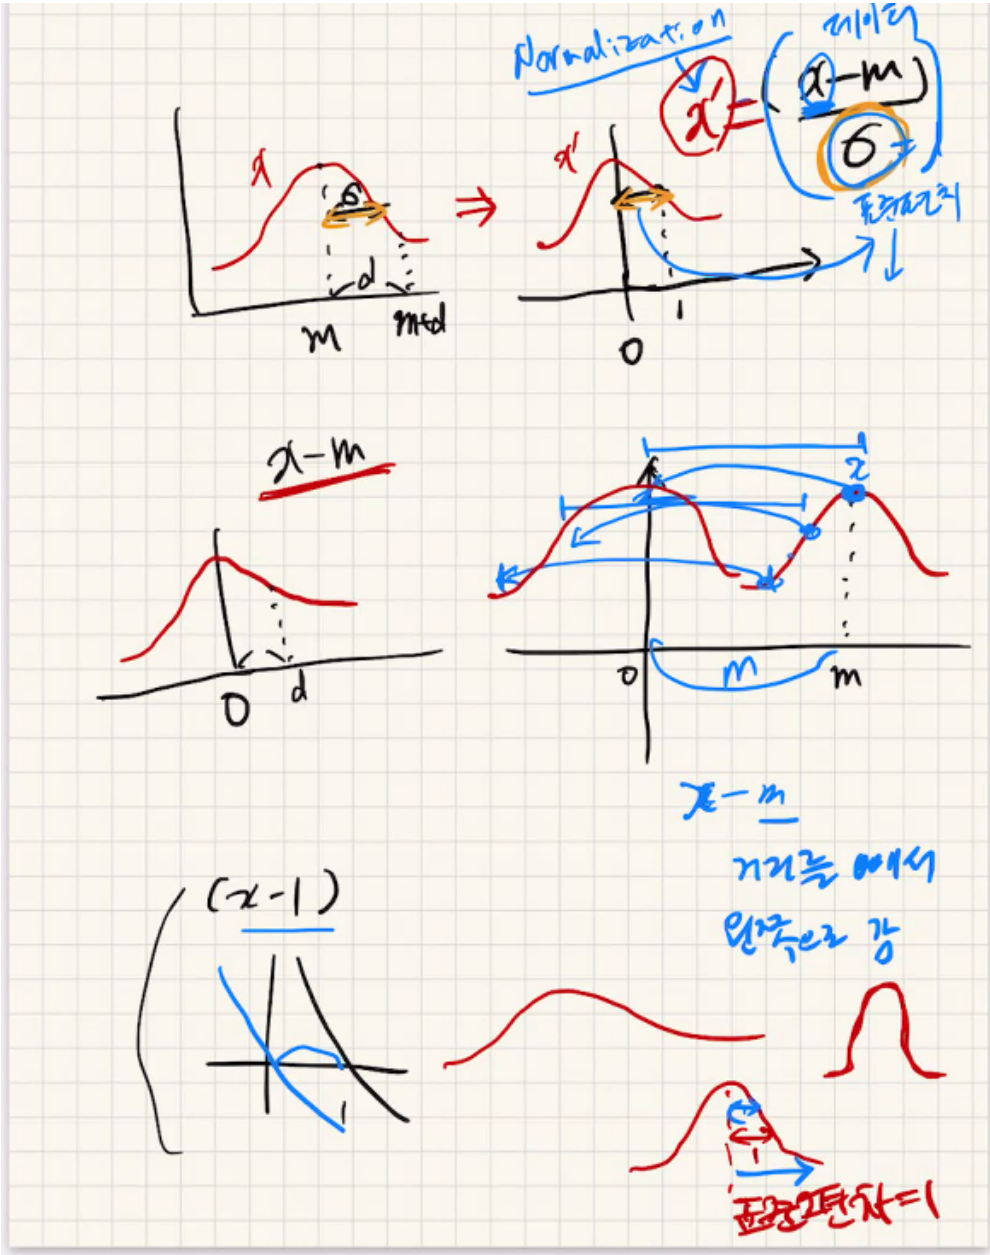 Normalization
데이터
x' = (x-m) / σ
표준편차
x
σ
d
m
m+d
x'
1
0
x-m
0
d
x
0
m
m
x-m
거리를 빼서
왼쪽으로 감
(x-1)
1
1
표준편차=1